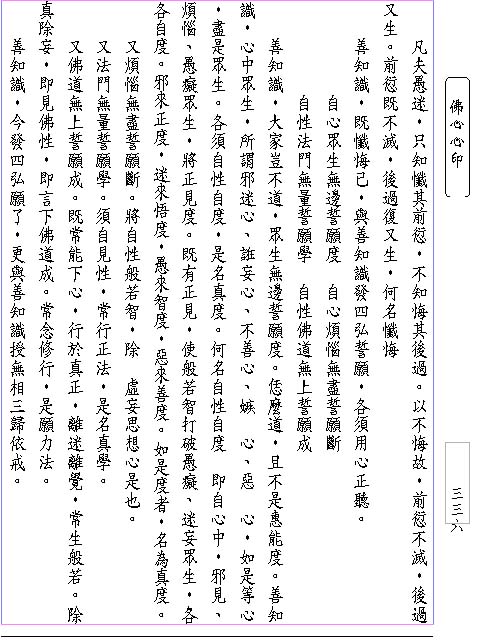 佛心心印
三三六
凡夫愚迷，只知懺其前愆，不知悔其後過。以不悔故，前愆不滅，後過
又生。前愆既不滅，後過復又生，何名懺悔
善知識，既懺悔已，與善知識發四弘誓願，各須用心正聽。
自心眾生無邊誓願度　自心煩惱無盡誓願斷
自性法門無量誓願學　自性佛道無上誓願成
善知識，大家豈不道，眾生無邊誓願度。恁麼道，且不是惠能度。善知
識，心中眾生，所謂邪迷心、誑妄心、不善心、嫉　心、惡　心，如是等心
，盡是眾生。各須自性自度，是名真度。何名自性自度　即自心中，邪見、
煩惱、愚癡眾生，將正見度。既有正見，使般若智打破愚癡、迷妄眾生，各
各自度。邪來正度，迷來悟度，愚來智度，惡來善度。如是度者，名為真度。
又煩惱無盡誓願斷。將自性般若智，除　虛妄思想心是也。
又法門無量誓願學。須自見性，常行正法，是名真學。
又佛道無上誓願成。既常能下心，行於真正，離迷離覺，常生般若。除
真除妄，即見佛性，即言下佛道成。常念修行，是願力法。
善知識，今發四弘願了，更與善知識授無相三歸依戒。